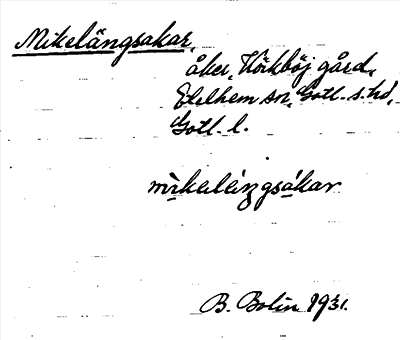 Mikelängsakar,
åker, Körkböj gård,
Etelhem sn, Gotl. s. hd,
Gotl. l.
mìkeléngsákar
B. Bolin 1931.